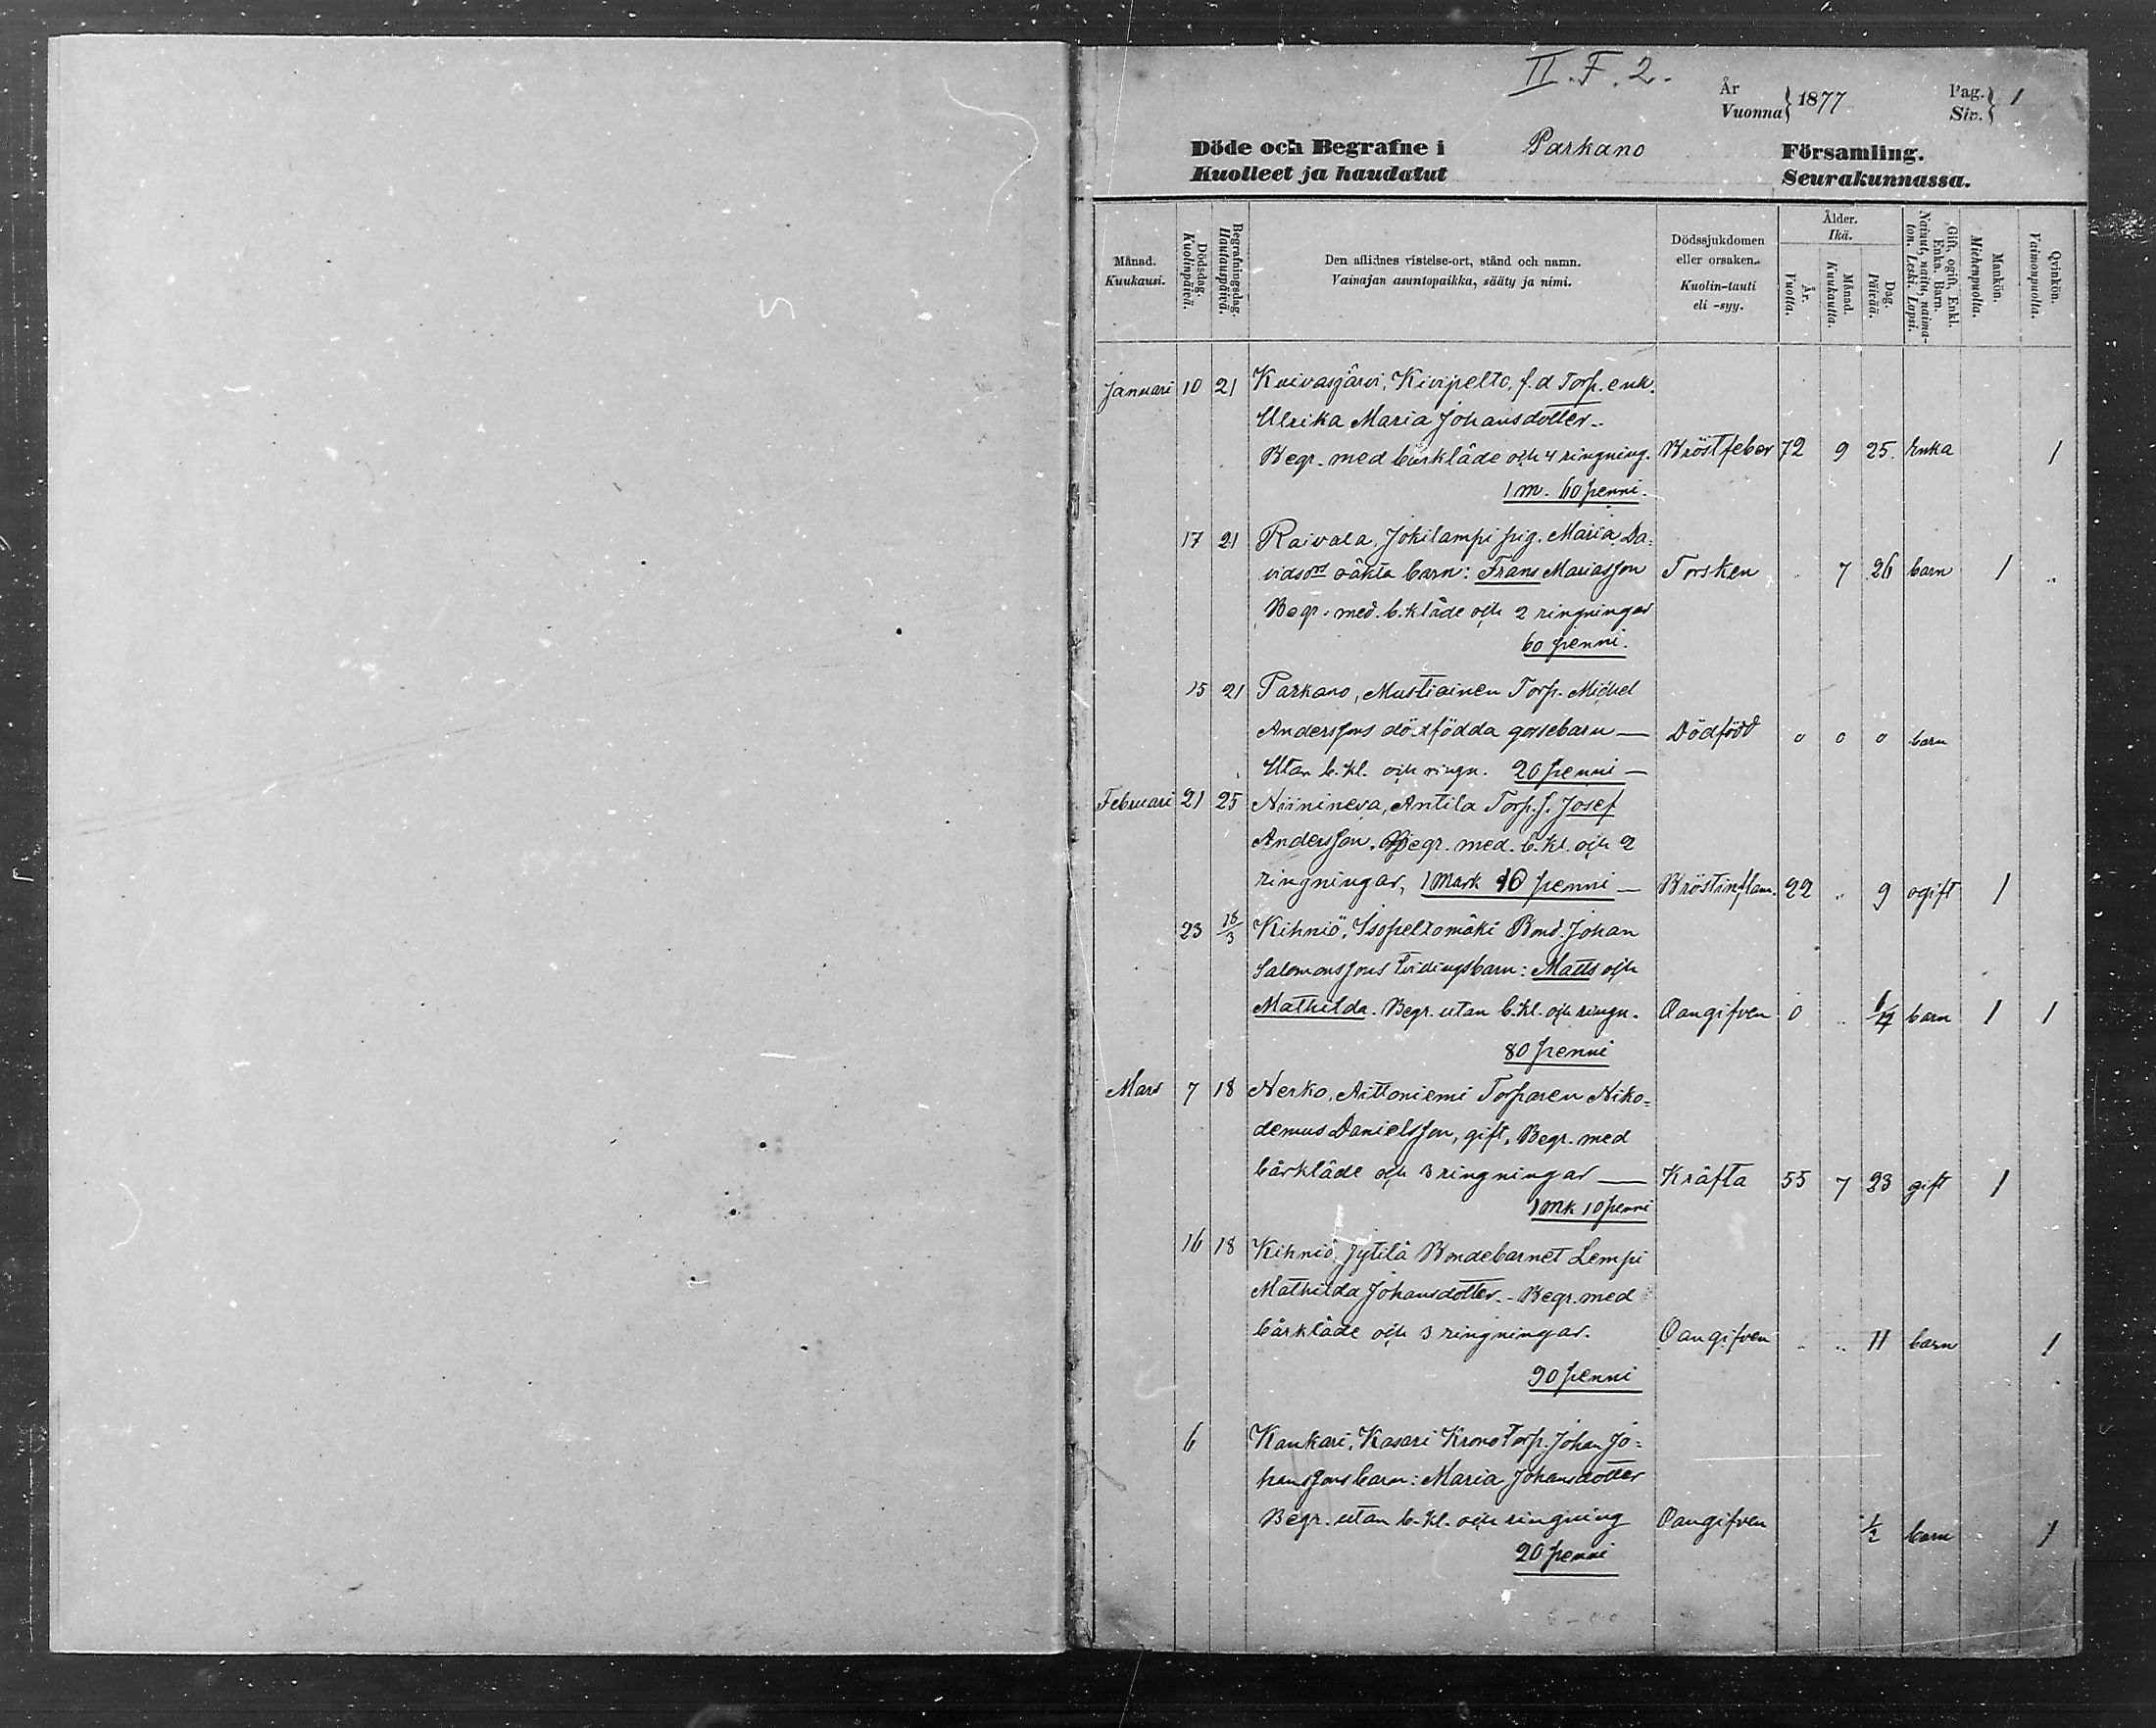 II. F. 2.
År
Vuonna } 1877
Pag.
Siv. } 1
Döde och Begrafne i Parkano Församling.
Kuolleet ja haudatut Seurakunnassa.
Månad.
Kuukausi.
Dödsdag.
Kuolinpäivä.
Begrafningsdag.
Hautauspäivä.
Den aflidnes vistelse-ort, stånd och namn.
Vainajan asuntopaikka, sääty ja nimi.
Dödssjukdomen
eller orsaken.
Kuolin-tauti
eli -syy.
Ålder.
Ikä.
År.
Vuotta.
Månad.
Kuukautta.
Dag.
Päivää.
Gift, ogift, Enkl.
Enka. Barn.
Nainut, naitu, naima-
ton. Leski. Lapsi.
Mankön.
Miehenpuolta.
Qvinkön.
Vaimonpuolta.
Januari 10 21 Kuivasjärvi, Kivipelto, f.d Torp. enk.
Ulrika Maria Johansdotter.
Begr. med bårkläde och 4 ringning. Bröstfeber 72 9 25. Enka 1
1 m. 60 penni.
17 21 Raivala, Jokilampi pig. Maria Da-
vidsdr oäkta barn: Frans Mariasson Torsken . 7 26 barn 1 ..
Begr. med. b.kläde och 2 ringningar
60 penni.
15 21 Parkano, Mustiainen Torp. Michel
Anderssons dödfödda gossebarn — Dödfödd 0 0 0 barn
Utan b.kl. och ringn. 20 penni —
Februari 21 25 Niinineva, Antila Torp. s. Josef
Andersson. Begr. med. b.kl. och 2
ringningar, 1 mark 10 penni — Bröstinflam. 22 .. 9 ogift 1
23 18/3 Kihniö, Isopeltomäki Bond. Johan
Salomonssons tvillingsbarn: Matts och
Mathilda. Begr. utan b.kl. och ringn. Oangifven 0 .. barn 1 1
80 penni
Mars 7 18 Nerko, Aittoniemi Torparen Niko-
demus Danielsson, gift, Begr. med
bårkläde och 3 ringningar — Kräfta 55 7 23 gift 1
1 mk 10 penni
16 18 Kihniö, Jytilä Bondebarnet Lempi
Mathilda Johansdotter. - Begr. med
bårkläde och 3 ringningar. Oangifven .. .. 11 barn 1
90 penni
6 Kankari, Kasari Krono Torp. Johan Jo-
hanssons barn: Maria Johansdotter
Begr. utan b.kl. och ringning Oangifven 1/2 barn 1
20 penni